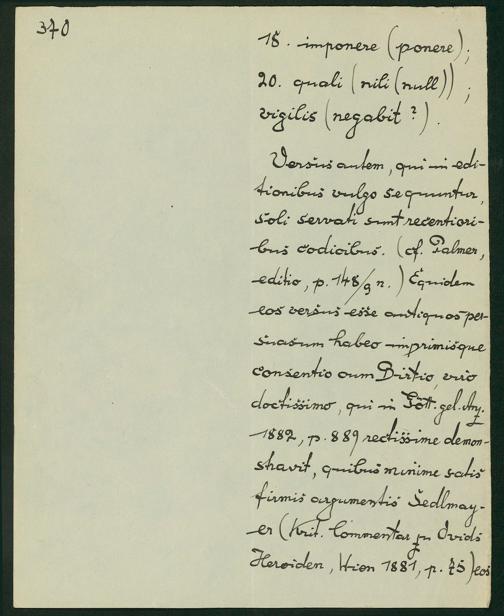 370
18. imponere (ponere);
20. quali (nili (null));
vigilis (negabit?).
Versus autem, qui in edi-
tionibus vulgo sequuntur,
soli servati sunt recentiori-
bus codicibus. (cf. Palmer,
editio, p. 148/9 n.) Equidem
eos versus esse antiquos per-
suasum habeo imprimisque
consentio cum Birtio, viro
doctissimo, qui in Gött. gel. Anz.
1882, p. 889 rectissime demon-
stravit, quibus minime satis
firmis argumentis Sedlmay-
er (Krit. Commentar zu Ovids
Heroiden, Wien 1881, p. 75) eos